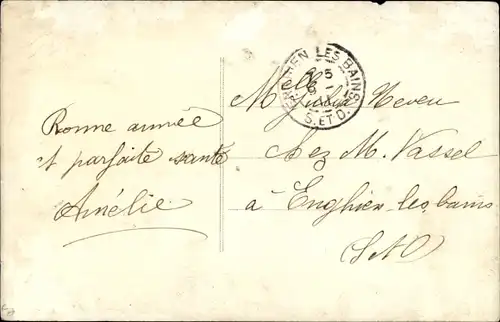 Bonne année
et parfaite santé
Amélie
ENGHIEN LES BAINS
5
S. ET O.
Melle Neveu
chez M. Vassel
à Enghien-les-bains
(S&O)